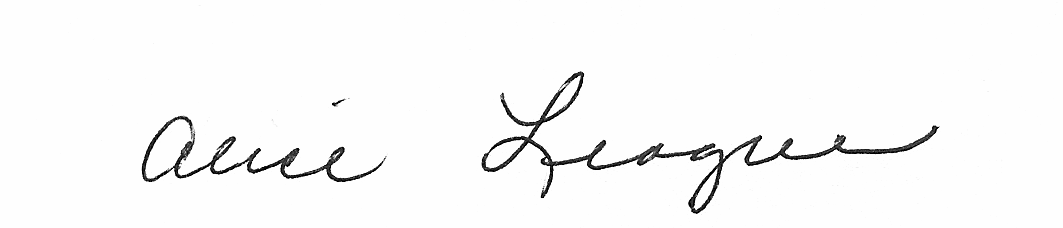 Alice League